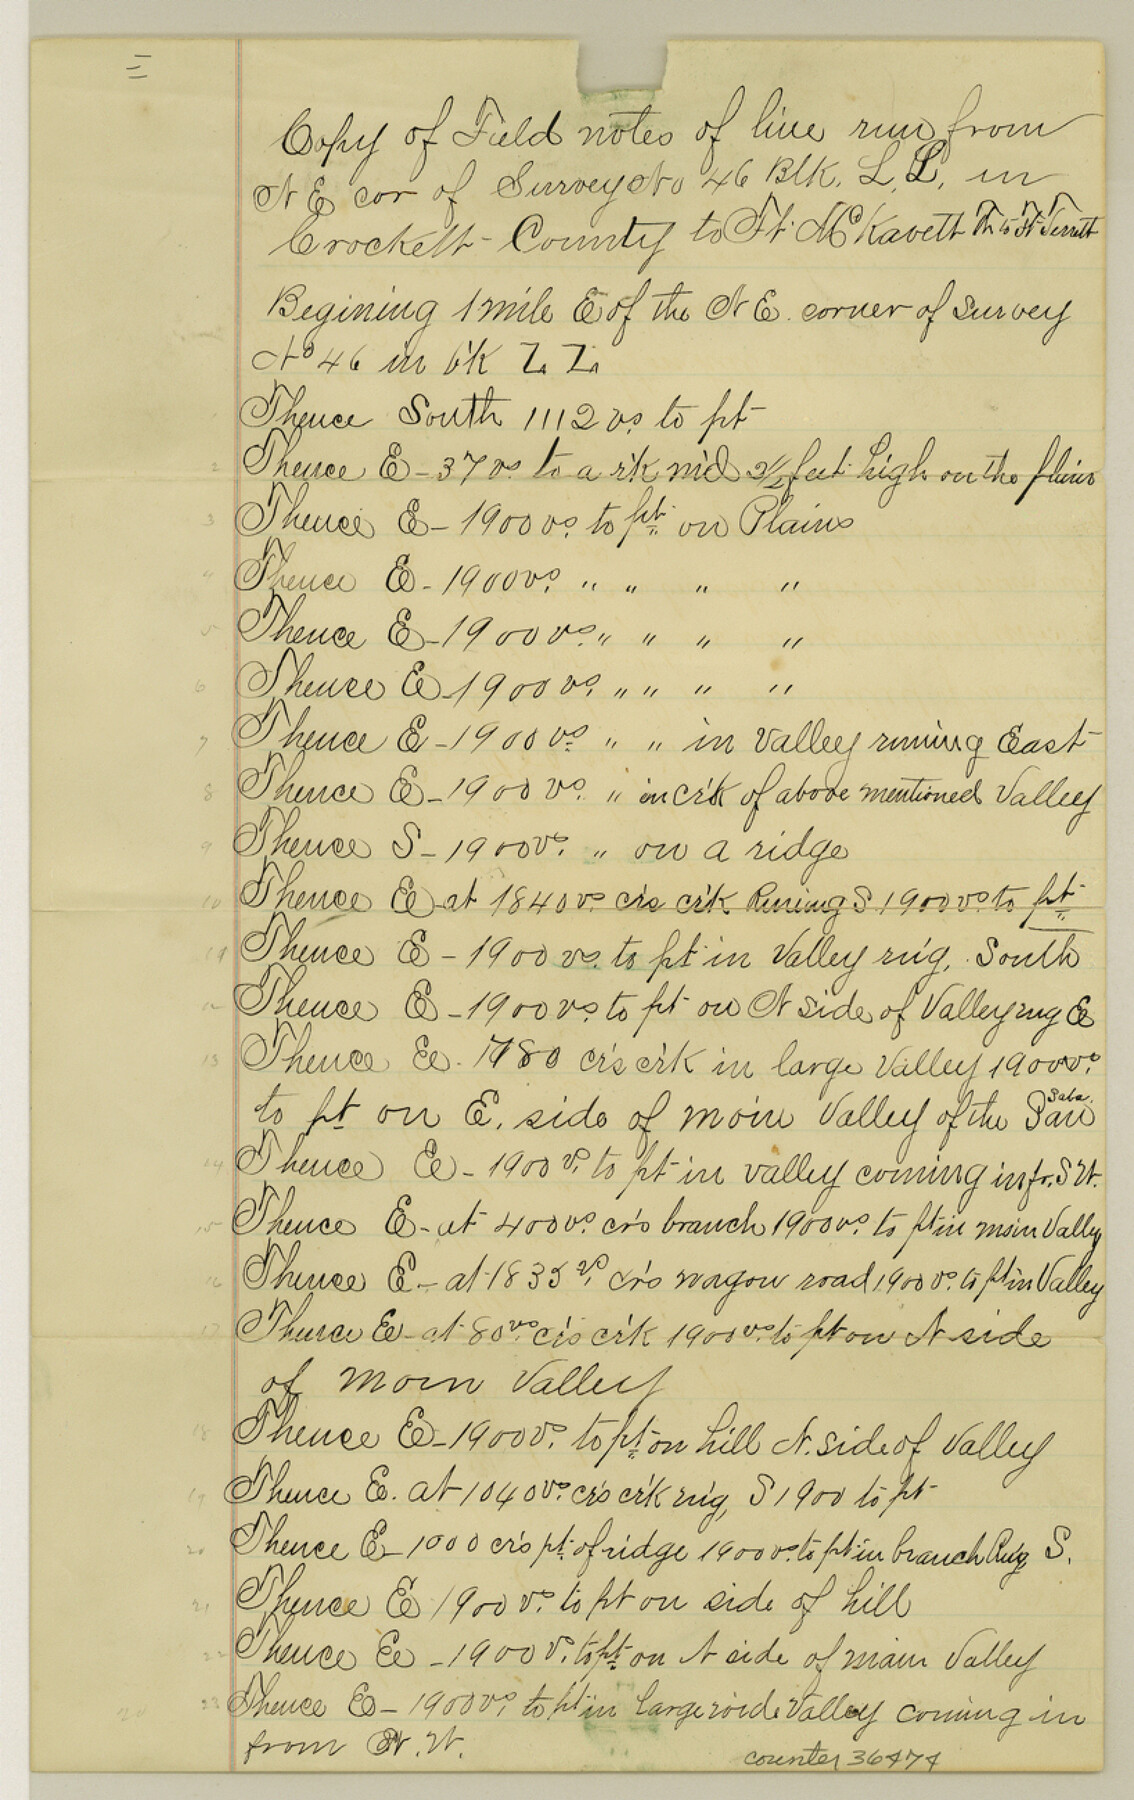 Copy of Field notes of line run from
N E cor of Survey No 46 Blk. L. L. in
Crockett County to Ft. McKavett Th to Ft Terrett
Begining 1 mile E of the N E. corner of Survey
No 46 in b'k L L
Thence South 1112 vs. to pt
2 Thence E - 37 vs to a r'k m'd 2 1/2 feet high on the plains
3 Thence E - 1900 vs. to pt. on Plains
4 Thence E - 1900 vs. " " " "
5 Thence E - 1900 vs. " " " "
6 Thence E - 1900 vs. " " " "
7 Thence E - 1900 vs. " " in valley runing East
8 Thence E - 1900 vs. " in cr'k of above mentioned Valley
9 Thence S - 1900 vs. " on a ridge
10 Thence E - at 1840 vs. crs cr'k Runing S. 1900 vs. to pt
11 Thence E - 1900 vs. to pt in Valley rn'g, South
12 Thence E - 1900 vs. to pt on N side of Valley rng E
13 Thence E. 1780 cr's cr'k in large Valley 1900 vs.
to pt on E. side of main Valley of the San Saba
14 Thence E - 1900 vs. to pt in valley coming in fr. S W.
15 Thence E - at 400 vs. cr's branch 1900 vs. to pt in main Valley
16 Thence E - at 1835 vs. cr's wagon road 1900 vs. to pt in Valley
17 Thence E - at 80 vs. cr's cr'k 1900 vs. to pt on N side
of main Valley
18 Thence E - 1900 vs. to pt on hill N. side of Valley
19 Thence E. at 1040 vs. cr's cr'k rn'g, S 1900 to pt
20 Thence E - 1000 cr's pt. of ridge 1900 vs. to pt in branch Rn'g S.
21 Thence E 1900 vs. to pt on side of hill
22 Thence E - 1900 vs. to pt on N side of main Valley
23 Thence E - 1900 vs. to pt in large wide Valley coming in
from N. W.
counter 36474